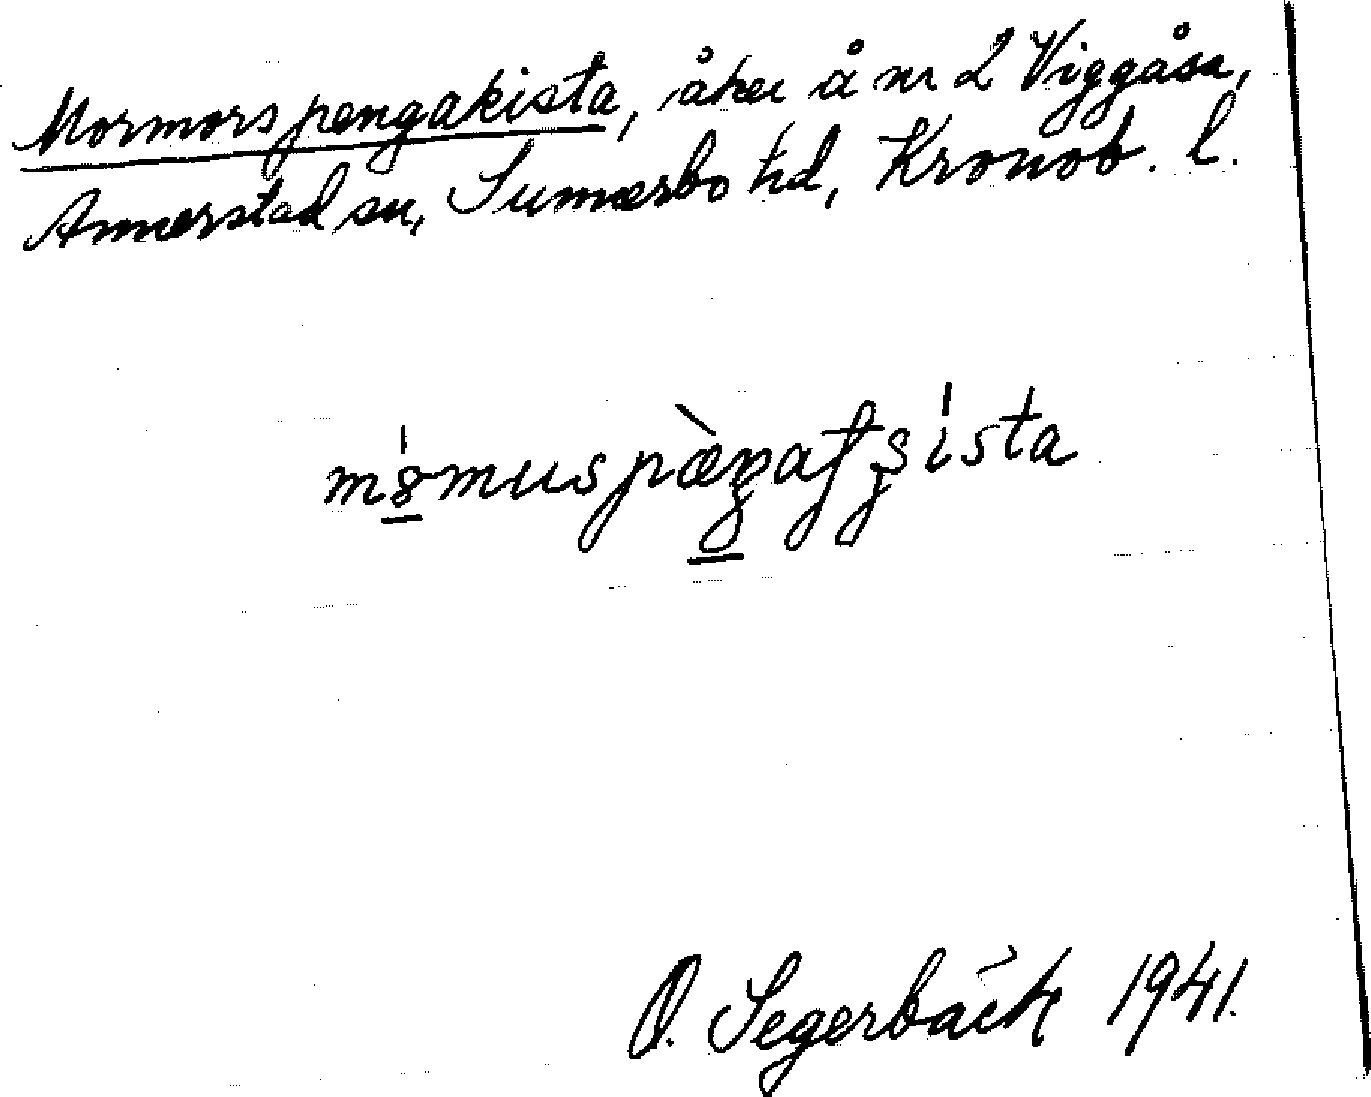 Mormors pengakista, åker å nr 2 Viggåsa,
Annerstad sn, Sunnerbo hd, Kronob. l.
O. Segerbäck 1941.